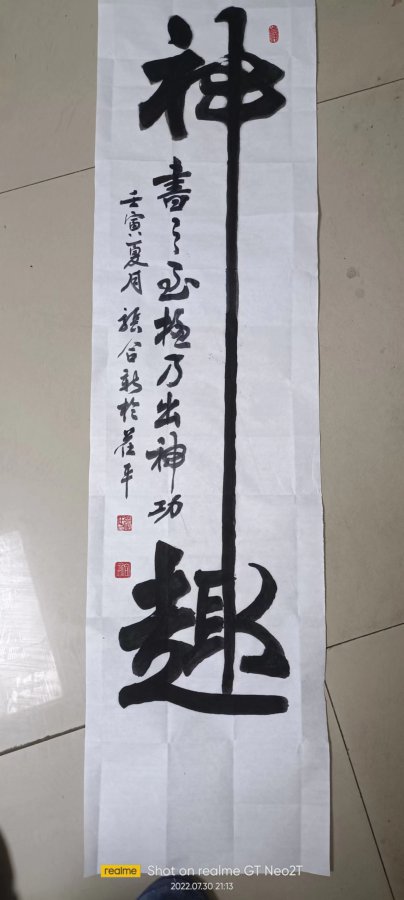 神趣
書之至極乃出神功
壬寅夏月 張合新於荏平
realme Shot on realme GT Neo2T
2022.07.30 21:13